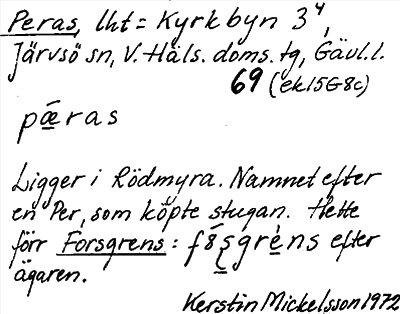 Peras, lht = Kyrkbyn 3⁴,
Järvsö sn, V. Häls. doms. tg, Gävl. l.
69 (ek 15G8c)
pǽras
Ligger i Rödmyra. Namnet efter
en Per, som köpte stugan. Hette
förr Forsgrens : f8̀ʂgréns efter
ägaren.
Kerstin Mickelsson 1972